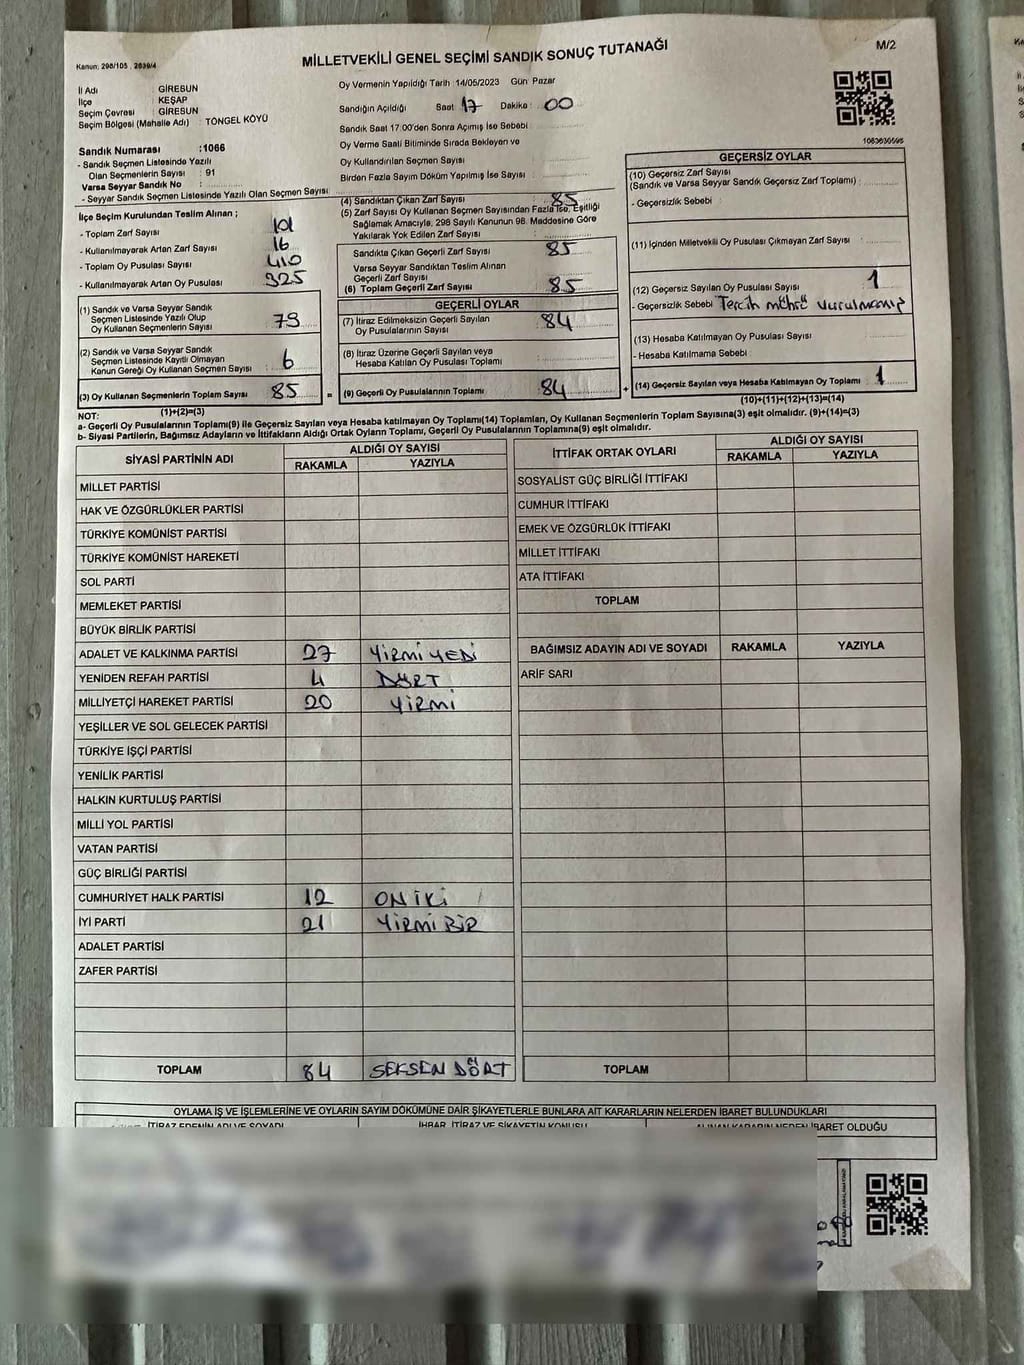 MİLLETVEKİLİ GENEL SEÇİMİ SANDIK SONUÇ TUTANAĞI
M/2
Kanun: 298/105 , 2839/4
İl Adı GİRESUN
İlçe KEŞAP
Seçim Çevresi : GİRESUN
Seçim Bölgesi (Mahalle Adı) : TÖNGEL KÖYÜ
Sandık Numarası :1066
- Sandık Seçmen Listesinde Yazılı
Olan Seçmenlerin Sayısı : 91
Varsa Seyyar Sandık No :
- Seyyar Sandık Seçmen Listesinde Yazılı Olan Seçmen Sayısı
Oy Vermenin Yapıldığı Tarih 14/05/2023 Gün: Pazar
Sandığın Açıldığı Saat : 17 Dakika : 00
Sandık Saat 17.00'den Sonra Açımış İse Sebebi
Oy Verme Saati Bitiminde Sırada Bekleyen ve
Oy Kullandırılan Seçmen Sayısı
Birden Fazla Sayım Döküm Yapılmış İse Sayısı
1063630595
İlçe Seçim Kurulundan Teslim Alınan ;
- Toplam Zarf Sayısı 101
- Kullanılmayarak Artan Zarf Sayısı 16
- Toplam Oy Pusulası Sayısı 410
- Kullanılmayarak Artan Oy Pusulası 325
(1) Sandık ve Varsa Seyyar Sandık
Seçmen Listesinde Yazılı Olup
Oy Kullanan Seçmenlerin Sayısı : 79
(2) Sandık ve Varsa Seyyar Sandık
Seçmen Listesinde Kayıtlı Olmayan
Kanun Gereği Oy Kullanan Seçmen Sayısı : 6
(3) Oy Kullanan Seçmenlerin Toplam Sayısı : 85 =
(1)+(2)=(3)
(4) Sandıktan Çıkan Zarf Sayısı : 85
(5) Zarf Sayısı Oy Kullanan Seçmen Sayısından Fazla İse, Eşitliği
Sağlamak Amacıyla, 298 Sayılı Kanunun 98. Maddesine Göre
Yakılarak Yok Edilen Zarf Sayısı :
Sandıkta Çıkan Geçerli Zarf Sayısı : 85
Varsa Seyyar Sandıktan Teslim Alınan
Geçerli Zarf Sayısı :
(6) Toplam Geçerli Zarf Sayısı : 85
GEÇERLİ OYLAR
(7) İtiraz Edilmeksizin Geçerli Sayılan
Oy Pusulalarının Sayısı : 84
(8) İtiraz Üzerine Geçerli Sayılan veya
Hesaba Katılan Oy Pusulası Toplamı :
(9) Geçerli Oy Pusulalarının Toplamı : 84 +
GEÇERSİZ OYLAR
(10) Geçersiz Zarf Sayısı
(Sandık ve Varsa Seyyar Sandık Geçersiz Zarf Toplamı) :
- Geçersizlik Sebebi :
(11) İçinden Milletvekili Oy Pusulası Çıkmayan Zarf Sayısı
(12) Geçersiz Sayılan Oy Pusulası Sayısı : 1
- Geçersizlik Sebebi : Tercih mührü vurulmamış
(13) Hesaba Katılmayan Oy Pusulası Sayısı :
- Hesaba Katılmama Sebebi :
(14) Geçersiz Sayılan veya Hesaba Katılmayan Oy Toplamı : 1
(10)+(11)+(12)+(13)=(14)
NOT:
a- Geçerli Oy Pusulalarının Toplamı(9) ile Geçersiz Sayılan veya Hesaba katılmayan Oy Toplamı(14) Toplamları, Oy Kullanan Seçmenlerin Toplam Sayısına(3) eşit olmalıdır. (9)+(14)=(3)
b- Siyasi Partilerin, Bağımsız Adayların ve İttifakların Aldığı Ortak Oyların Toplamı, Geçerli Oy Pusulalarının Toplamına(9) eşit olmalıdır.
SİYASİ PARTİNİN ADI ALDIĞI OY SAYISI
RAKAMLA YAZIYLA
MİLLET PARTİSİ
HAK VE ÖZGÜRLÜKLER PARTİSİ
TÜRKİYE KOMÜNİST PARTİSİ
TÜRKİYE KOMÜNİST HAREKETİ
SOL PARTİ
MEMLEKET PARTİSİ
BÜYÜK BİRLİK PARTİSİ
ADALET VE KALKINMA PARTİSİ 27 YİRMİ YEDİ
YENİDEN REFAH PARTİSİ 4 DÖRT
MİLLİYETÇİ HAREKET PARTİSİ 20 YİRMİ
YEŞİLLER VE SOL GELECEK PARTİSİ
TÜRKİYE İŞÇİ PARTİSİ
YENİLİK PARTİSİ
HALKIN KURTULUŞ PARTİSİ
MİLLİ YOL PARTİSİ
VATAN PARTİSİ
GÜÇ BİRLİĞİ PARTİSİ
CUMHURİYET HALK PARTİSİ 12 ON İKİ
İYİ PARTİ 21 YİRMİ BİR
ADALET PARTİSİ
ZAFER PARTİSİ
TOPLAM 84 SEKSEN DÖRT
İTTİFAK ORTAK OYLARI ALDIĞI OY SAYISI
RAKAMLA YAZIYLA
SOSYALİST GÜÇ BİRLİĞİ İTTİFAKI
CUMHUR İTTİFAKI
EMEK VE ÖZGÜRLÜK İTTİFAKI
MİLLET İTTİFAKI
ATA İTTİFAKI
TOPLAM
BAĞIMSIZ ADAYIN ADI VE SOYADI RAKAMLA YAZIYLA
ARİF SARI
TOPLAM
OYLAMA İŞ VE İŞLEMLERİNE VE OYLARIN SAYIM DÖKÜMÜNE DAİR ŞİKAYETLERLE BUNLARA AİT KARARLARIN NELERDEN İBARET BULUNDUKLARI
İTİRAZ EDENİN ADI VE SOYADI İHBAR, İTİRAZ VE ŞİKAYETİN KONUSU ALINAN KARARIN NEDEN İBARET OLDUĞU